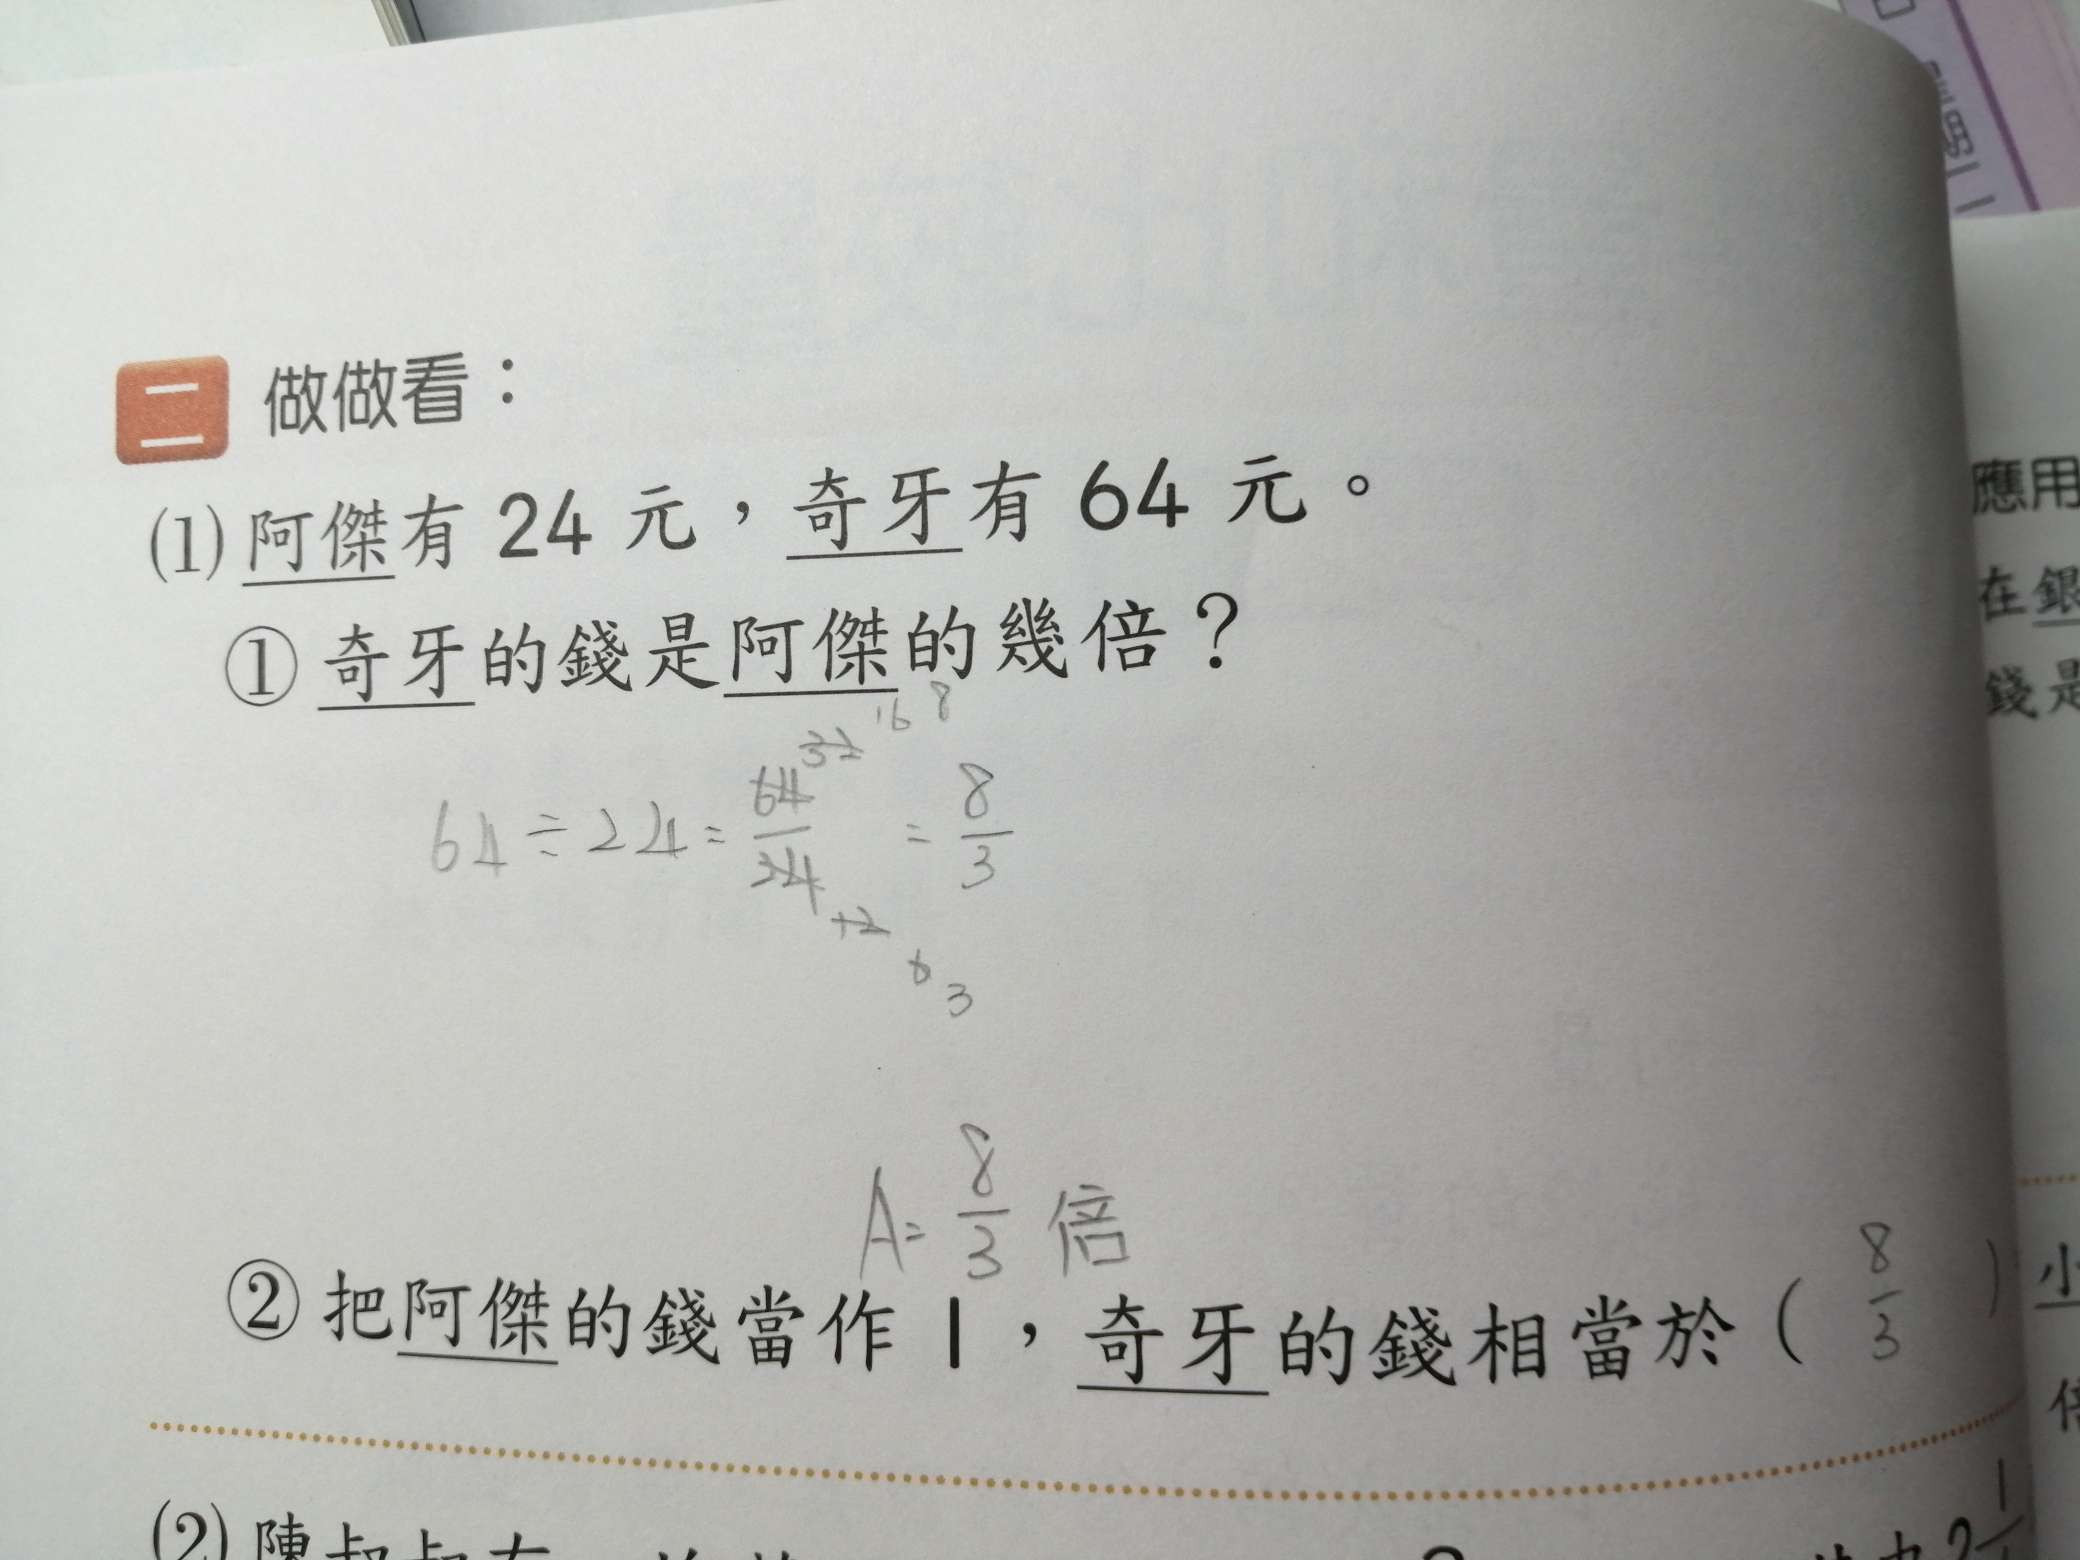 二 做做看：
(1) 阿傑有 24 元，奇牙有 64 元。
① 奇牙的錢是阿傑的幾倍？
32 16 8
64÷24=64/24=8/3
12 6 3
A=8/3 倍
② 把阿傑的錢當作 1，奇牙的錢相當於（ 8/3 ）
(2) 陳叔叔有
應用
在銀
錢是
小
倍